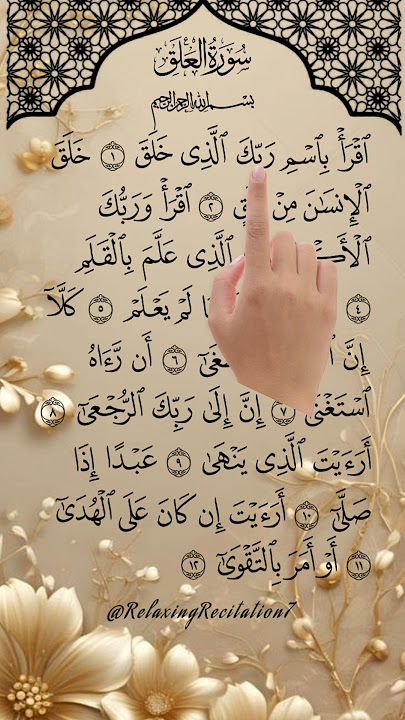 سُورَةُ الْعَلَقِ
بِسْمِ اللَّهِ الرَّحْمَٰنِ الرَّحِيمِ
ٱقْرَأْ بِٱسْمِ رَبِّكَ ٱلَّذِى خَلَقَ ١ خَلَقَ
ٱلْإِنسَٰنَ مِنْ ٢ ٱقْرَأْ وَرَبُّكَ
ٱلَّذِى عَلَّمَ بِٱلْقَلَمِ
٤ لَمْ يَعْلَمْ ٥ كَلَّآ
إِنَّ ٦ أَن رَّءَاهُ
ٱسْتَغْنَىٰٓ ٧ إِنَّ إِلَىٰ رَبِّكَ ٱلرُّجْعَىٰٓ ٨
أَرَءَيْتَ ٱلَّذِى يَنْهَىٰ ٩ عَبْدًا إِذَا
صَلَّىٰٓ ١٠ أَرَءَيْتَ إِن كَانَ عَلَى ٱلْهُدَىٰٓ
١١ أَوْ أَمَرَ بِٱلتَّقْوَىٰٓ ١٢
@RelaxingRecitation7